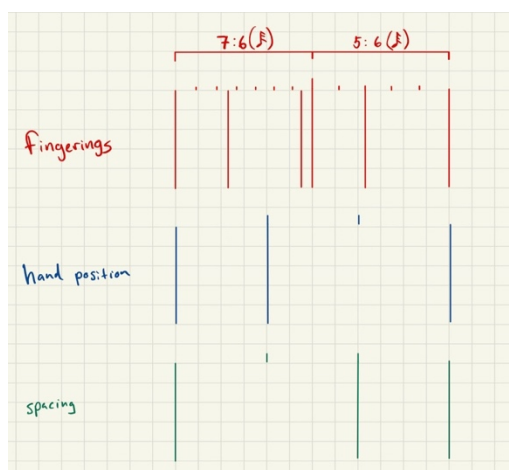 7:6(𝅘𝅥𝅯) 5:6(𝅘𝅥𝅯)
fingerings
hand position
spacing